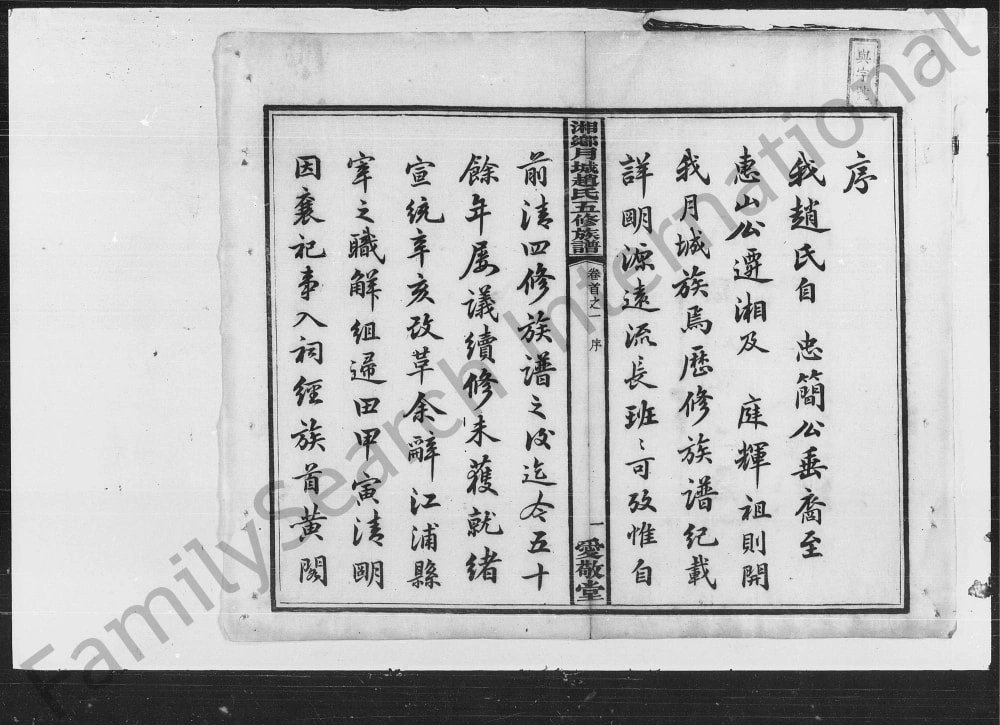 序
我趙氏自 忠簡公垂裔至
惠山公遷湘及 庭輝祖則開
我月城族焉歷修族譜紀載
詳明源遠流長班〻可攷惟自
湘鄉月城趙氏五修族譜
卷首之一 序
一
愛敬堂
前清四修族譜之後迄今五十
餘年屢議續修未獲就緒
宣統辛亥改革余辭江浦縣
宰之職解組歸田甲寅清明
因襄祀事入祠經族首黃閣
與字號
FamilySearch International